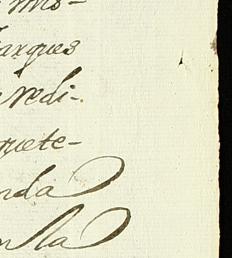 mis-
arques
redi-
quete-
nda
n la